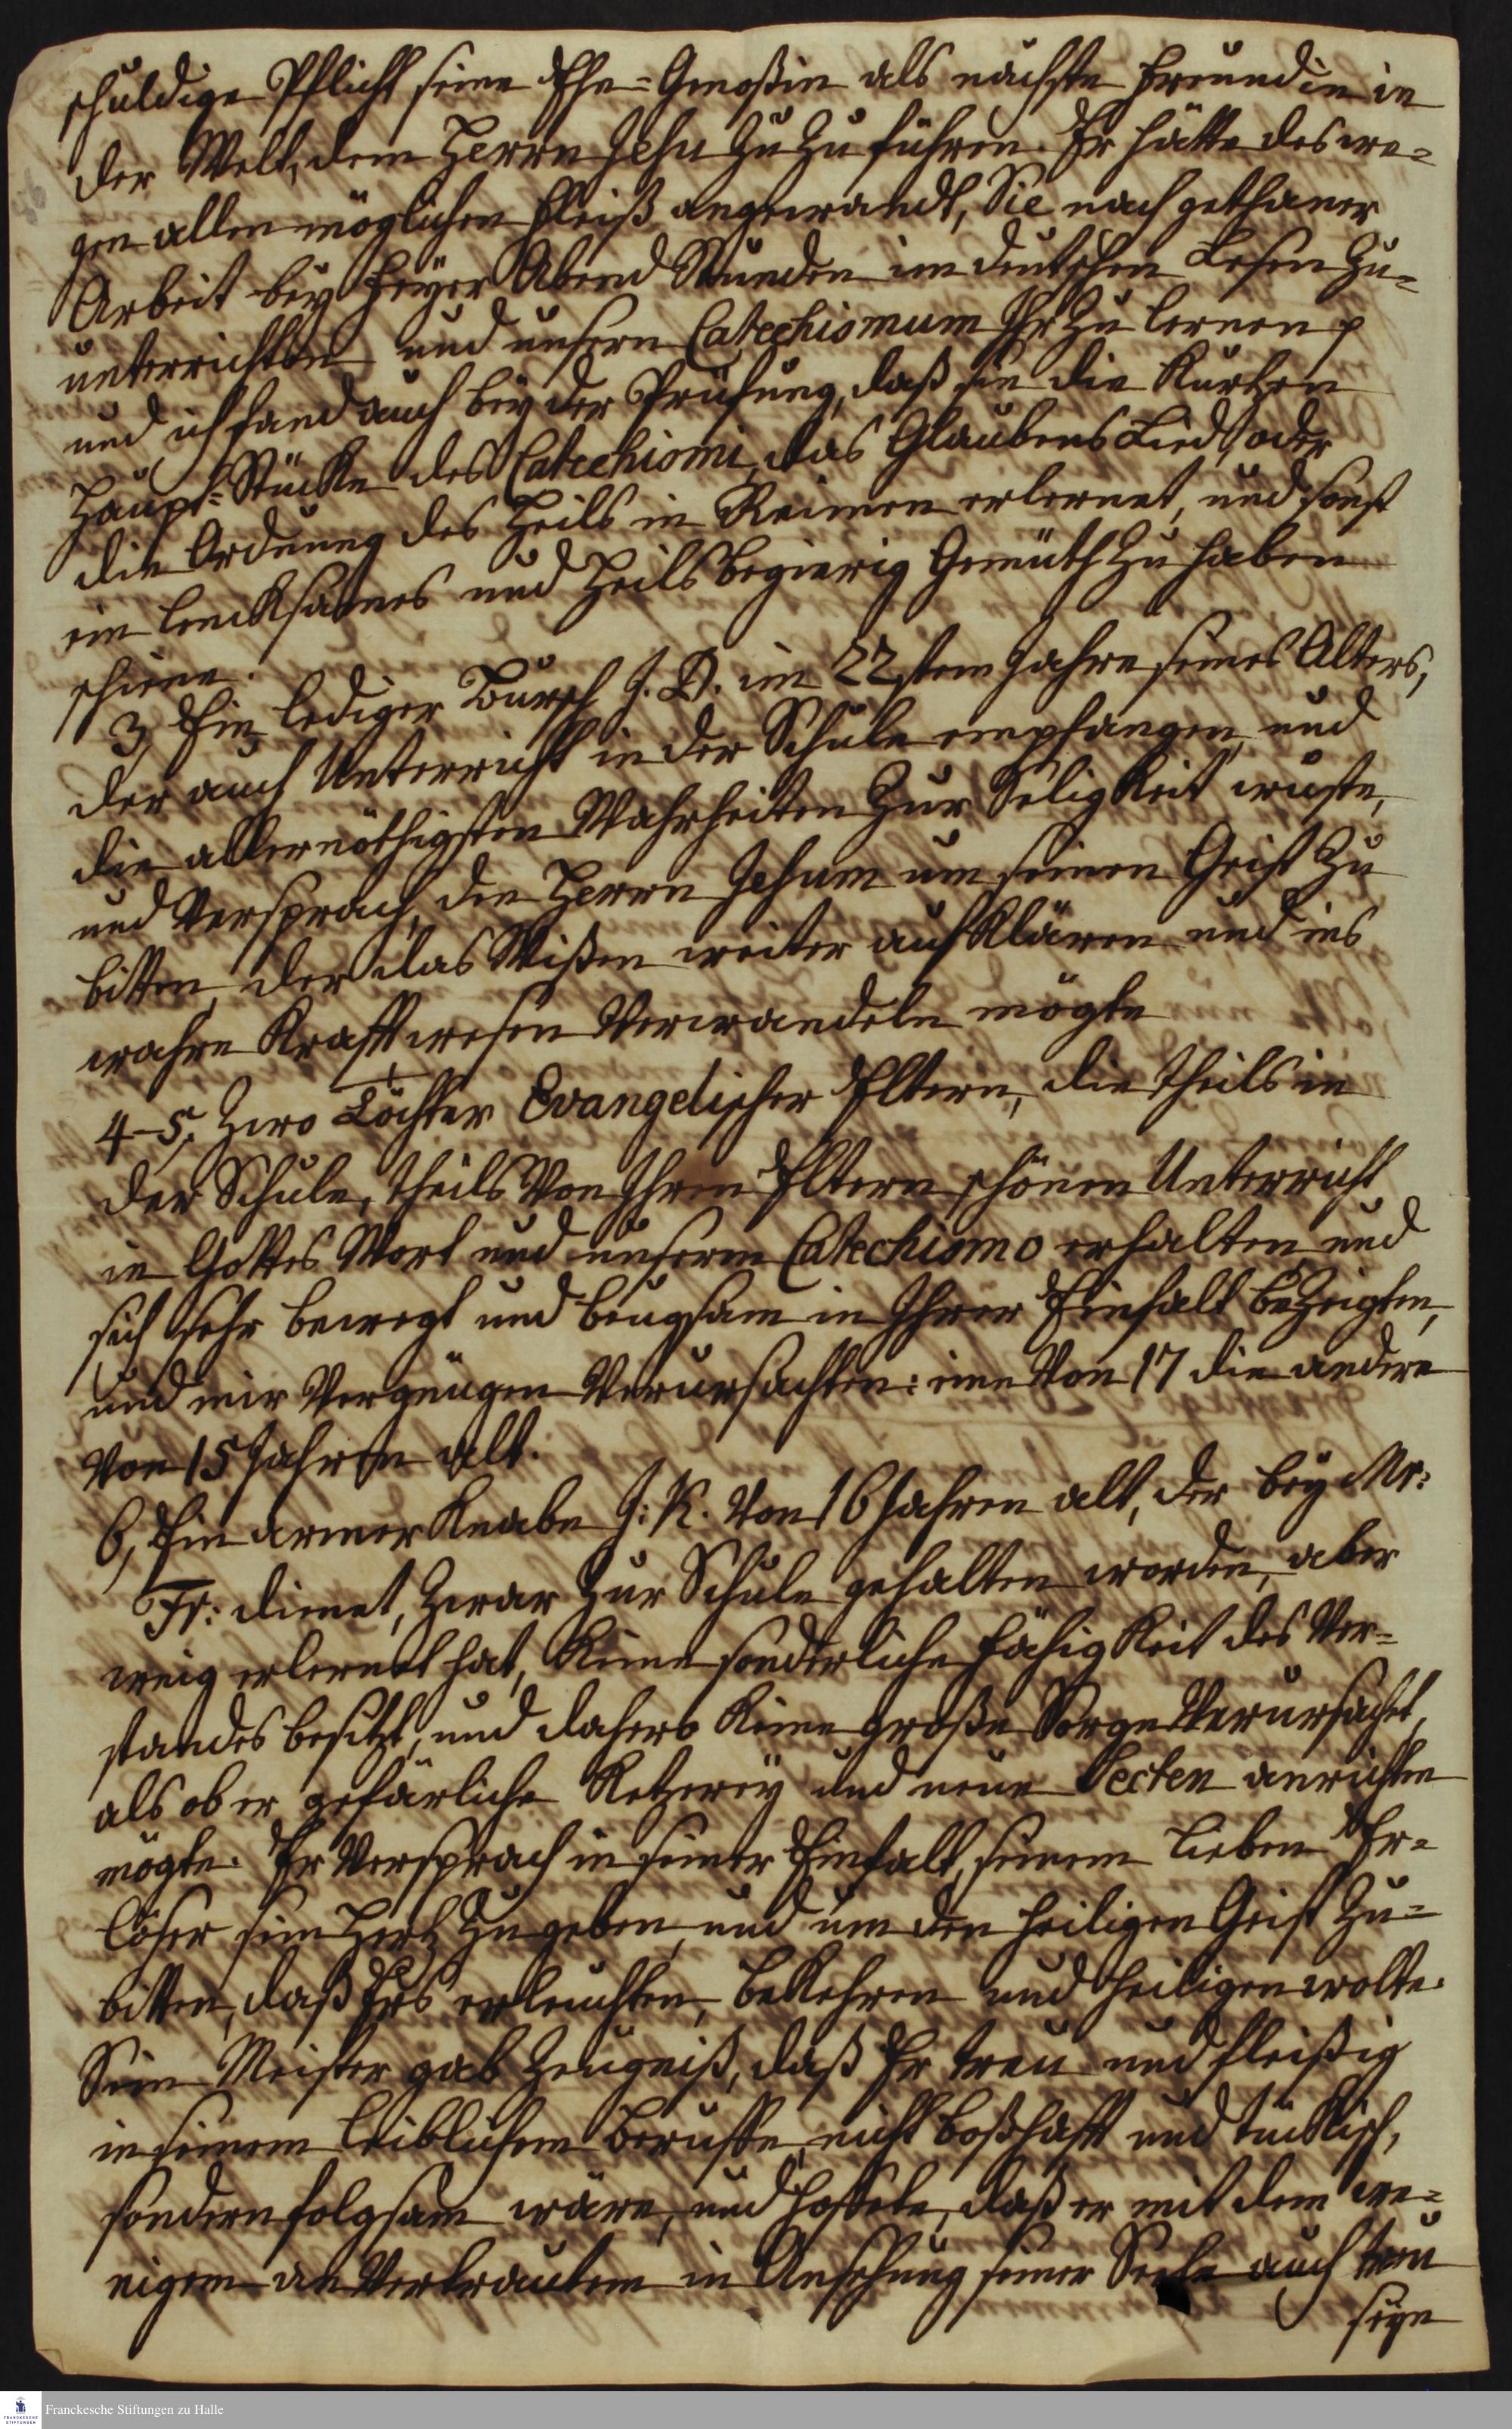 schuldige Pflicht seine Ehe-Genoßin als nächste Freundin in
der Welt, dem Herrn Jesu zu zu führen. Er hätte deswe-
gen allen möglichen Fleiß angewandt, Sie nach gethaner
Arbeit bey Feyer Abend Stunden im deutschen Lesen zu-
unterrichten und unsern Catechismum Ihr zu lernen p
und ich fand auch bey der Prüfung, daß sie die Kurtzen
Haupt-Stücke des Catechismi, das Glaubens Lied, oder
die Ordnung des Heils in Reimen erlernet, und sonst
ein lencksames und Heilsbegierig Gemüth zu haben
schiene.
3, Ein lediger Bursch J. D. im 22stem Jahre seines Alters,
der auch Unterricht in der Schule empfangen, und
die allernöthigsten Wahrheiten zur Seligkeit wuste,
und Versprach, den Herrn Jesum um seinen Geist zu
bitten, der das Wißen weiter aufklären und ins
wahre Krafft wesen Verwandeln mögte
4-5, Zwo Töchter Evangelischer Eltern, die theils in
der Schule, theils Von Ihren Eltern schönen Unterricht
in Gottes Wort und unserm Catechismo erhalten, und
sich sehr bewegt und beugsam in Ihrer Einfalt bezeigten,
und mir Vergnügen Verursachten: eine Von 17 die andere
Von 15 Jahren alt.
6, Ein armer Knabe J: K. Von 16 Jahren alt, der bey Mr:
Fr: dienet, zwar zur Schule gehalten worden, aber
wenig erlernet hat, Keine sonderliche Fähigkeit des Ver-
standes besitzt, und dahero Keine große Sorge Verursachet,
als ob er gefärliche Ketzerey und neue Secten anrichten
mögte. Er Versprach in seiner Einfalt, seinem lieben Er-
löser sein Hertz zu geben, und um den heiligen Geist zu-
bitten, daß Ers erleuchten, bekehren und heiligen wolte.
Sein Meister gab Zeugniß, daß Er treu und fleißig
in seinem leiblichem Beruffe, nicht boßhafft und tückisch,
sondern folgsam wäre, und hoffete, daß er mit dem we-
nigem an Vertrautem in Ansehung seiner Seele auch treu
seyn
Franckesche Stiftungen zu Halle